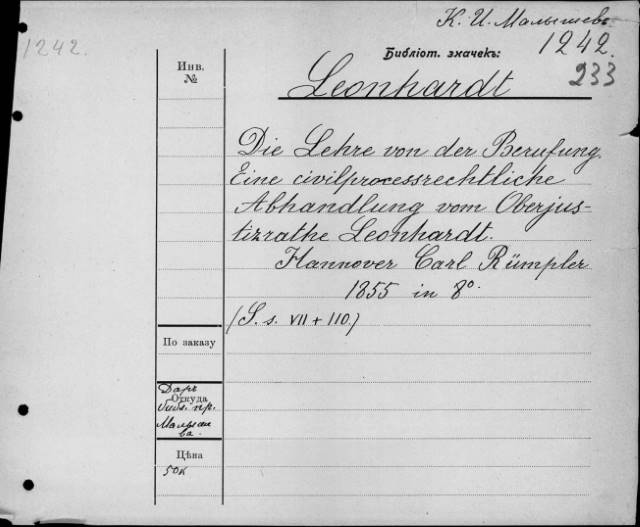 К. И. Малышевъ
1242.
1242.
Библіот. значекъ:
233
Инв.
№
Leonhardt
Die Lehre von der Berufung.
Eine civilprocessrechtliche
Abhandlung vom Oberjus-
tizrathe Leonhardt.
Hannover Carl Rümpler
1855 in 8º.
(S. s. VII + 110.)
По заказу
Откуда
Даръ
библ. пр.
Малыше
ва.
Цѣна
50к